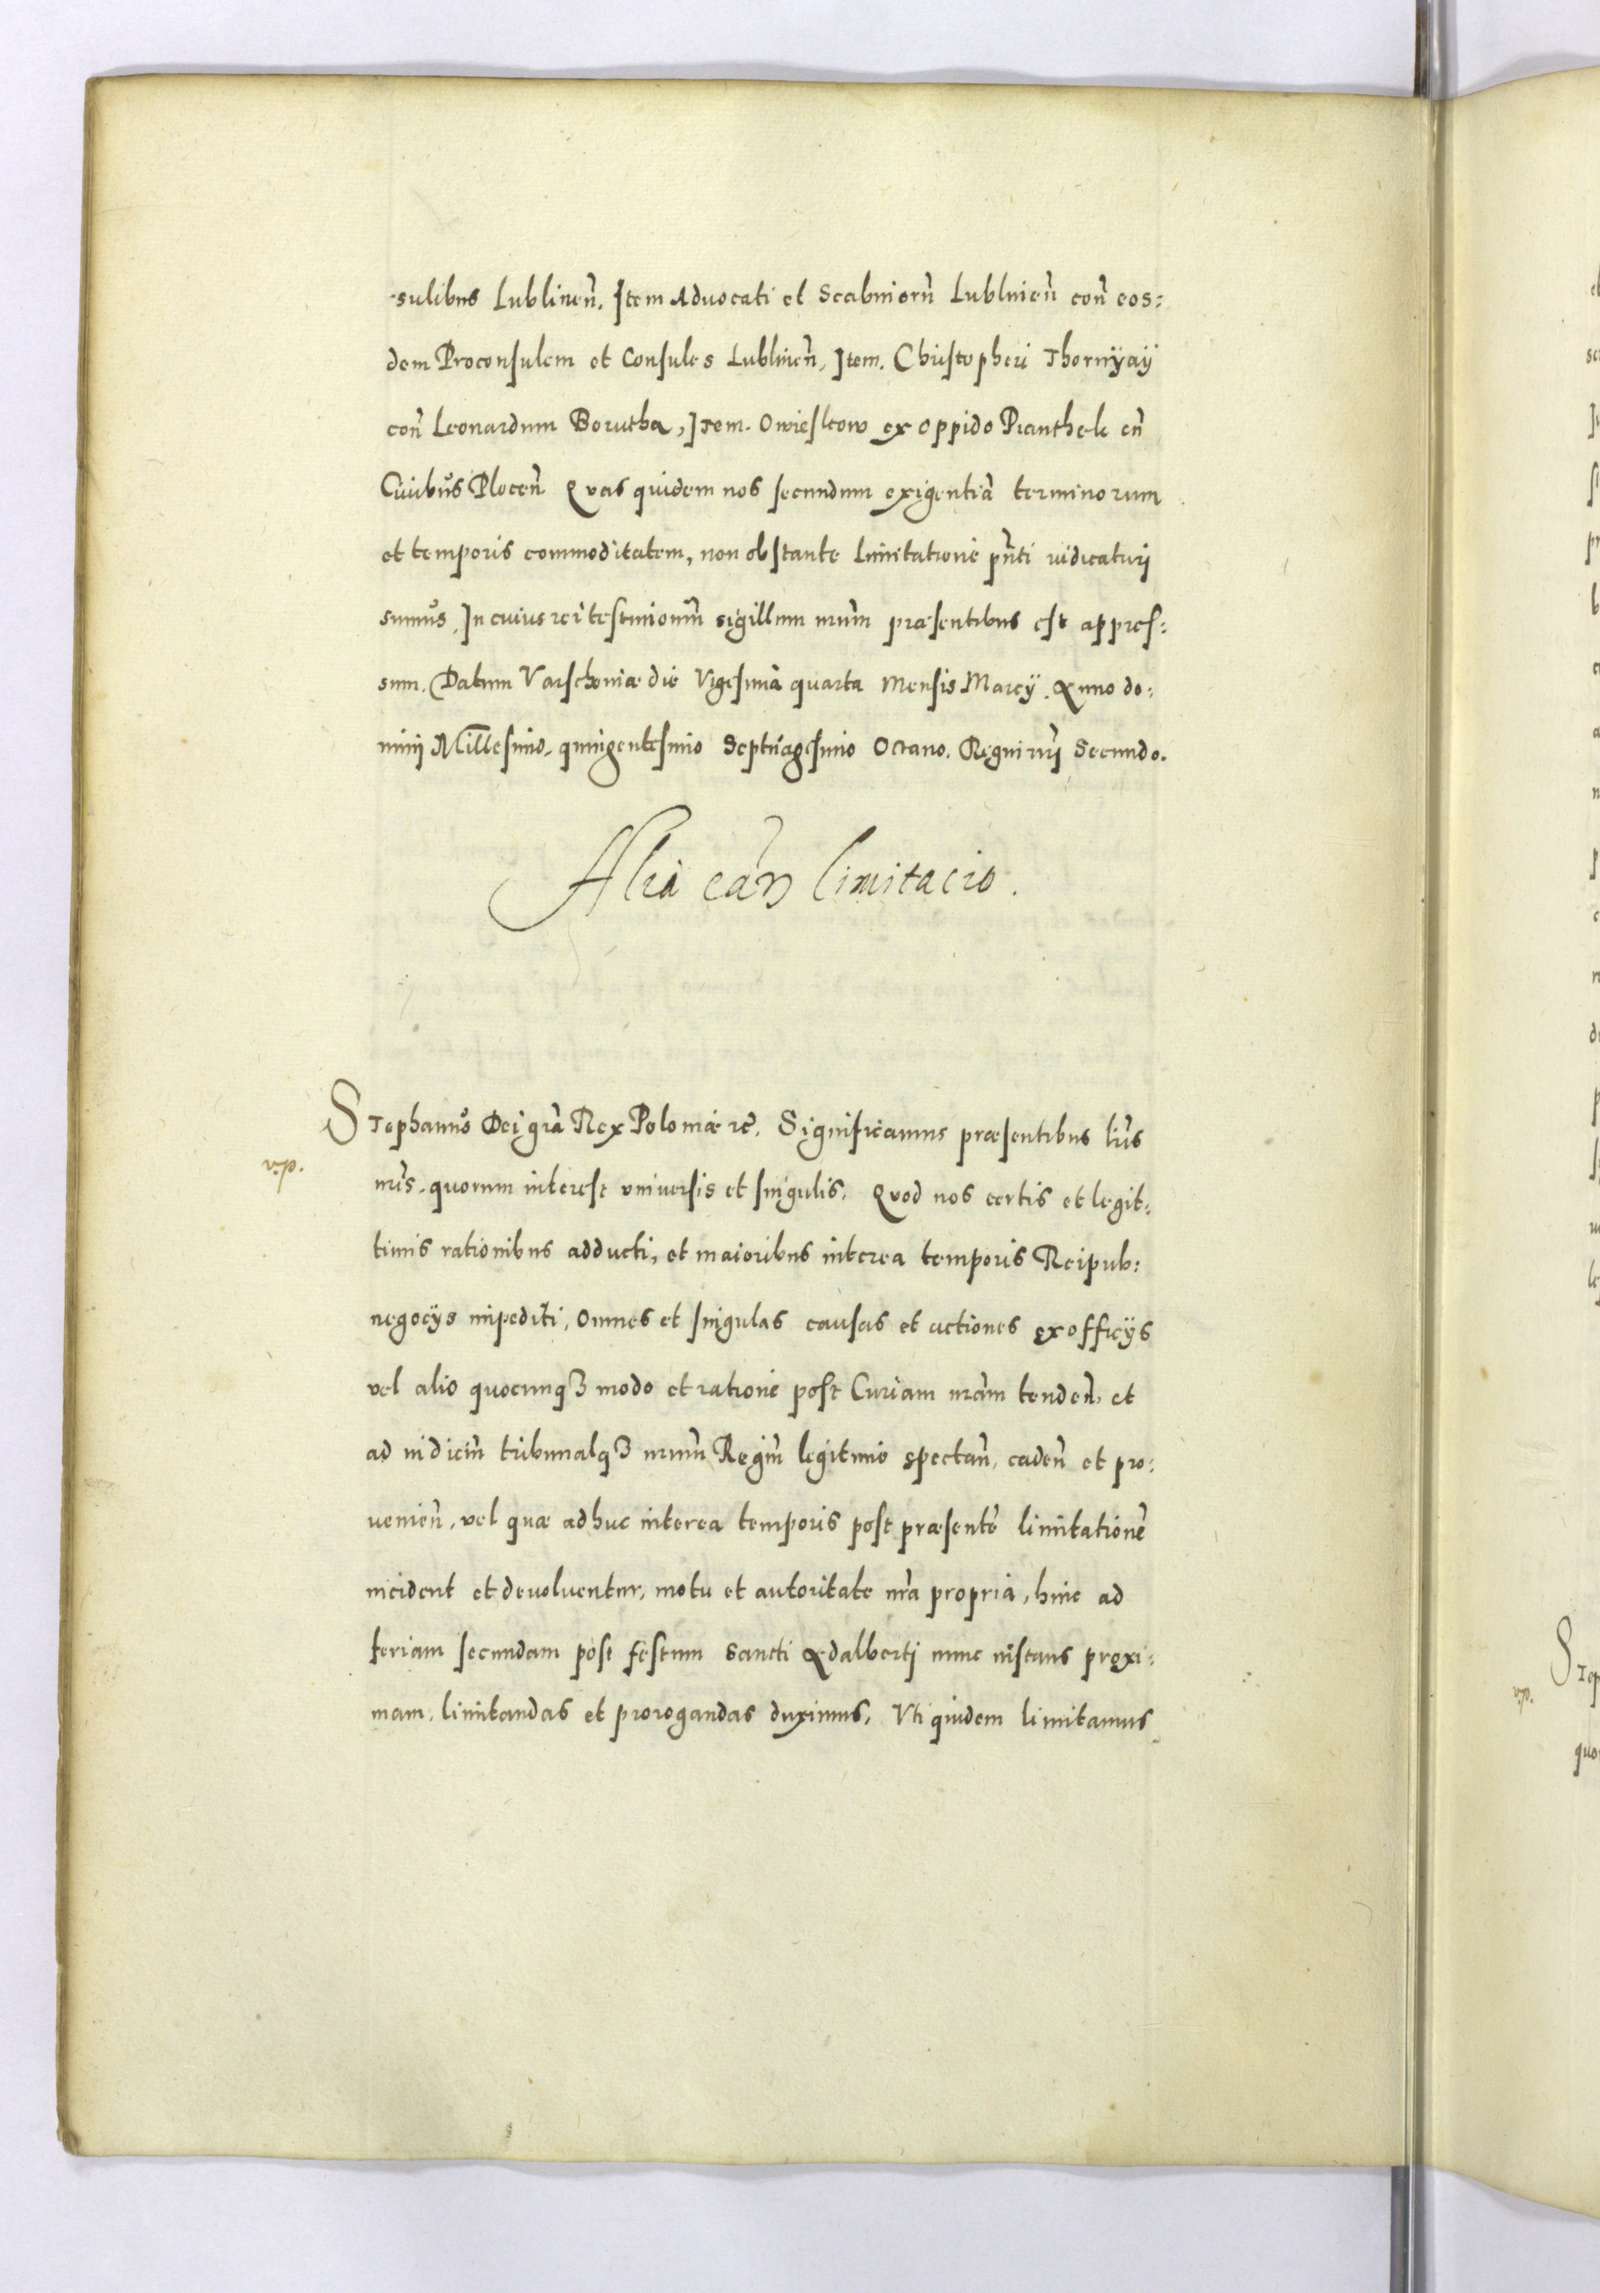 sulibus Lublinen̄. Item Advocati et Scabinorū Lublinen̄ con̄ eos:
dem Proconsulem et Consules Lublinen̄, Item. Christopheri Thornÿaÿ
con̄ Leonardum Borutha, Item. Owiesleow ex oppido Pianthek cn̄
Ciuibus Plocen̄ Quas quidem nos secundum exigentiā terminorum
et temporis commoditatem, non obstante limitatione pn̄ti iudicaturi
sumus. In cuius rei testimoniūm sigillum nrūm præsentibus est appres:
sum. Datum Varschoviæ die Vigesima quarta Mensis Marcÿ. Anno do:
minj Millesimo. quingentesimo Septuagesimo Octavo. Regni nrj Secundo.
Alia can̄ limitacio.
Stephanus Dei grā Rex Poloniæ &c. Significamus præsentibus lrīs
v.p.
nrīs. quorum interest vniversis et singulis. Quod nos certis et legit:
timis rationibus adducti, et maioribus interea temporis Reipub:
negocÿs impediti, Omnes et singulas causas et actiones ex officÿs
vel alio quocunqȝ modo et ratione post Curiam nrām tenden̄, et
ad iudiciū tribunalqȝ nrūm Regiū legitimo spectan̄, caden̄ et pro:
uenien̄, vel quæ adhuc interea temporis post præsentē limitationē
incident et devoluentur, motu et autoritate nrā propria, hinc ad
feriam secundam post festum Sancti Adalbertj nunc instans proxi:
mam, limitandas et prorogandas duximus, Vti quidem limitamus